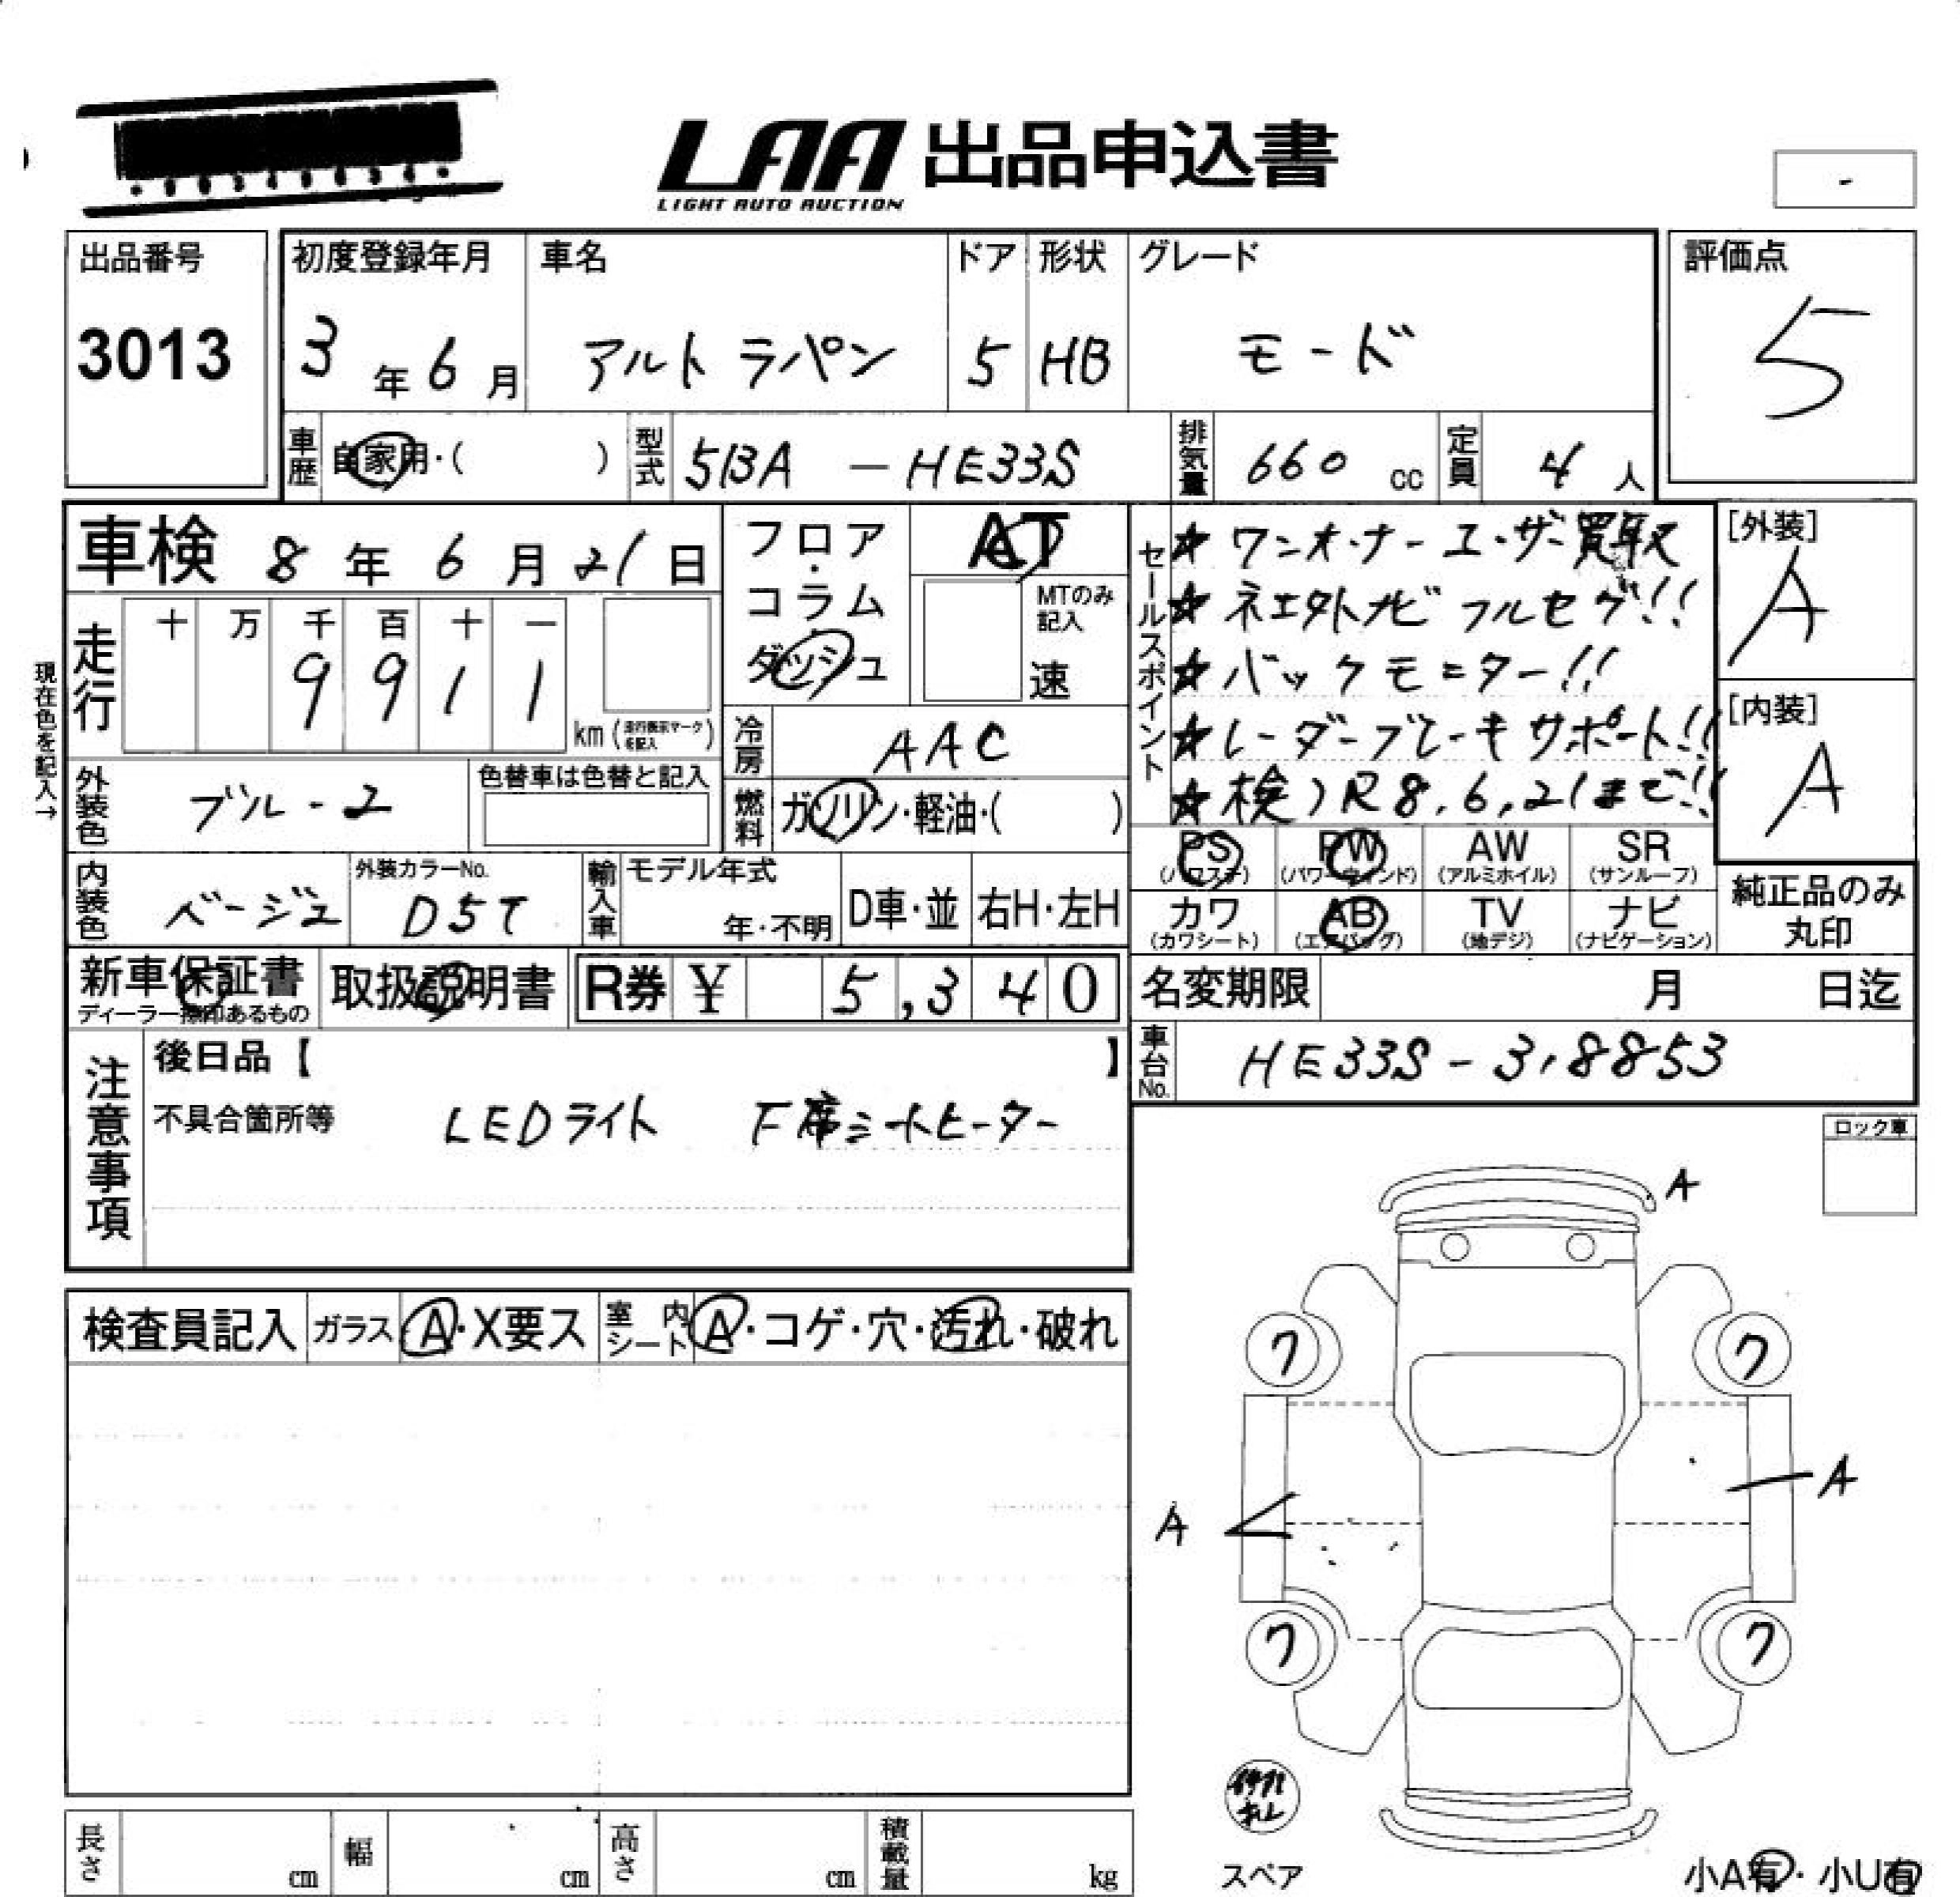 LAA 出品申込書
LIGHT AUTO AUCTION
-
出品番号
3013
初度登録年月
3年6月
車名
アルトラパン
ドア
5
形状
HB
グレード
モード
評価点
5
車歴 自家用・( )
型式 5BA - HE33S
排気量 660 cc
定員 4 人
車検 8年6月21日
フロア・コラム・ダッシュ
AT
MTのみ記入
速
セールスポイント
★ワンオーナーユーザー買取
★社外ナビフルセグ!!
★バックモニター!!
★レーダーブレーキサポート!!
★検)R8.6.21まで!!
[外装]
A
[内装]
A
現在色を記入→
走行
十 万 千 百 十 一
9 9 1 1
km (走行表示マークを記入)
冷房 AAC
外装色 ブルー2
色替車は色替と記入
燃料 ガソリン・軽油・( )
PS (パワステ)
PW (パワーウインド)
AW (アルミホイル)
SR (サンルーフ)
カワ (カワシート)
AB (エアバッグ)
TV (地デジ)
ナビ (ナビゲーション)
純正品のみ丸印
内装色 ベージュ
外装カラーNo.
D5T
輸入車
モデル年式
年・不明
D車・並
右H・左H
新車保証書
ディーラー捺印あるもの
取扱説明書
R券 ¥ 5,340
名変期限 月 日迄
車台No. HE33S-318853
注意事項
後日品【 】
不具合箇所等 LEDライト F席シートヒーター
ロック車
検査員記入
ガラス A・X要ス
室内シート A・コゲ・穴・汚れ・破れ
A
ワ ワ
A
A
ワ ワ
スペア
小A有・小U有
長さ cm
幅 cm
高さ cm
積載量 kg